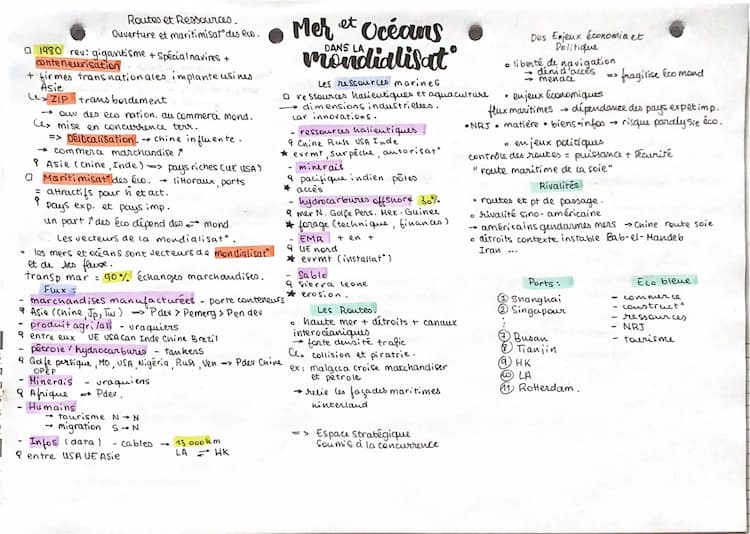 Routes et Ressources.
Ouverture et maritimisat° des éco.
1980 rev: gigantisme + spécial navires +
conteneurisation
+ firmes transnationales implante usines
Asie
ZIP transbordement
→ ouv des eco nation. au commerce mond.
mise en concurrence terr.
=> Délocalisation → chine influente.
→ commerce marchandise ↑
Asie (Chine, Inde) → pays riches (UE USA)
Maritimisat° des éco. → littoraux, ports
= attractifs pour h et act.
pays exp. et pays imp.
un part ↑ des éco dépend des ⇌ mond
Les vecteurs de la mondialisat°.
les mers et océans sont vecteurs de mondialisat°
et de ses flux.
transp mar = 90% échanges marchandises.
Flux :
- marchandises manufacturées - porte conteneurs
Asie (Chine, Jp, Tw) → Pdev > Pemerg > Pen dev
- produit agri/ali - vraquiers
entre eux UE USA Can Inde Chine Brezil
- pétrole / hydrocarbures - tankers
Golfe persique, MO, USA, Nigéria, Russ, Ven → Pdev Chine
OPEP
- Minerais - vraquiers
Afrique → Pdev.
- Humains
→ tourisme N → N
→ migration S → N
- Infos (data) - cables → 13 000 km
entre USA UE Asie LA ⇌ HK
Mer et Océans
DANS LA
mondialisat°
Les ressources marines
ressources halieutiques et aquaculture
→ dimensions industrielles.
car innovations.
- ressources halieutiques
Chine Russ USA Inde
★ evrmt, surpêche, autorisat°
- minerais
pacifique indien pôles
★ accès
- hydrocarbures offshore 30%
mer N. Golfe Pers. Mex. Guinée
★ forage (technique, finances)
- EMR + en +
UE nord
★ evrmt (installat°)
- Sable
Sierra leone
★ erosion.
Les Routes.
haute mer + détroits + canaux
interocéaniques
→ forte densité trafic
collision et piraterie.
ex: malacca croise marchandiser
et pétrole
→ relie les façades maritimes
hinterland
=> Espace stratégique
soumis à la concurrence
Des Enjeux économia et
Politique
liberté de navigation
→ déni d'accès
menace => fragilise éco mond
• enjeux économiques
flux maritimes → dépendance des pays exp et imp.
• NRJ • matière • biens • infos → risque paralysie éco.
enjeux politiques
contrôle des routes = puissance + sécurité
"route maritime de la soie"
Rivalités
routes et pt de passage.
rivalité sino-américaine
→ américains gendarmes mers → Chine route soie
détroits contexte instable Bab-el-Mandeb
Iran ...
Ports:
① Shanghai
② Singapour
⋮
⑦ Busan
⑧ Tianjin
⑨ HK
⑩ LA
⑪ Rotterdam.
Eco bleue
- commerce
- construct°
- ressources
- NRJ
- tourisme